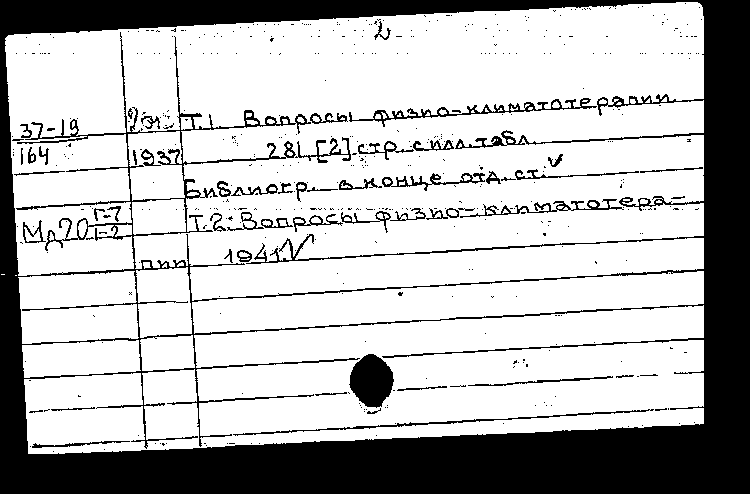 2
37-19
164
Т.1. Вопросы физио-климатотерапии
1937. 281, [2] стр. с илл. табл.
Библиогр. в конце отд. ст. ✓
Мд70 Г-7
Г-2
Т.2: Вопросы физио-климатотера-
пии 1941. V